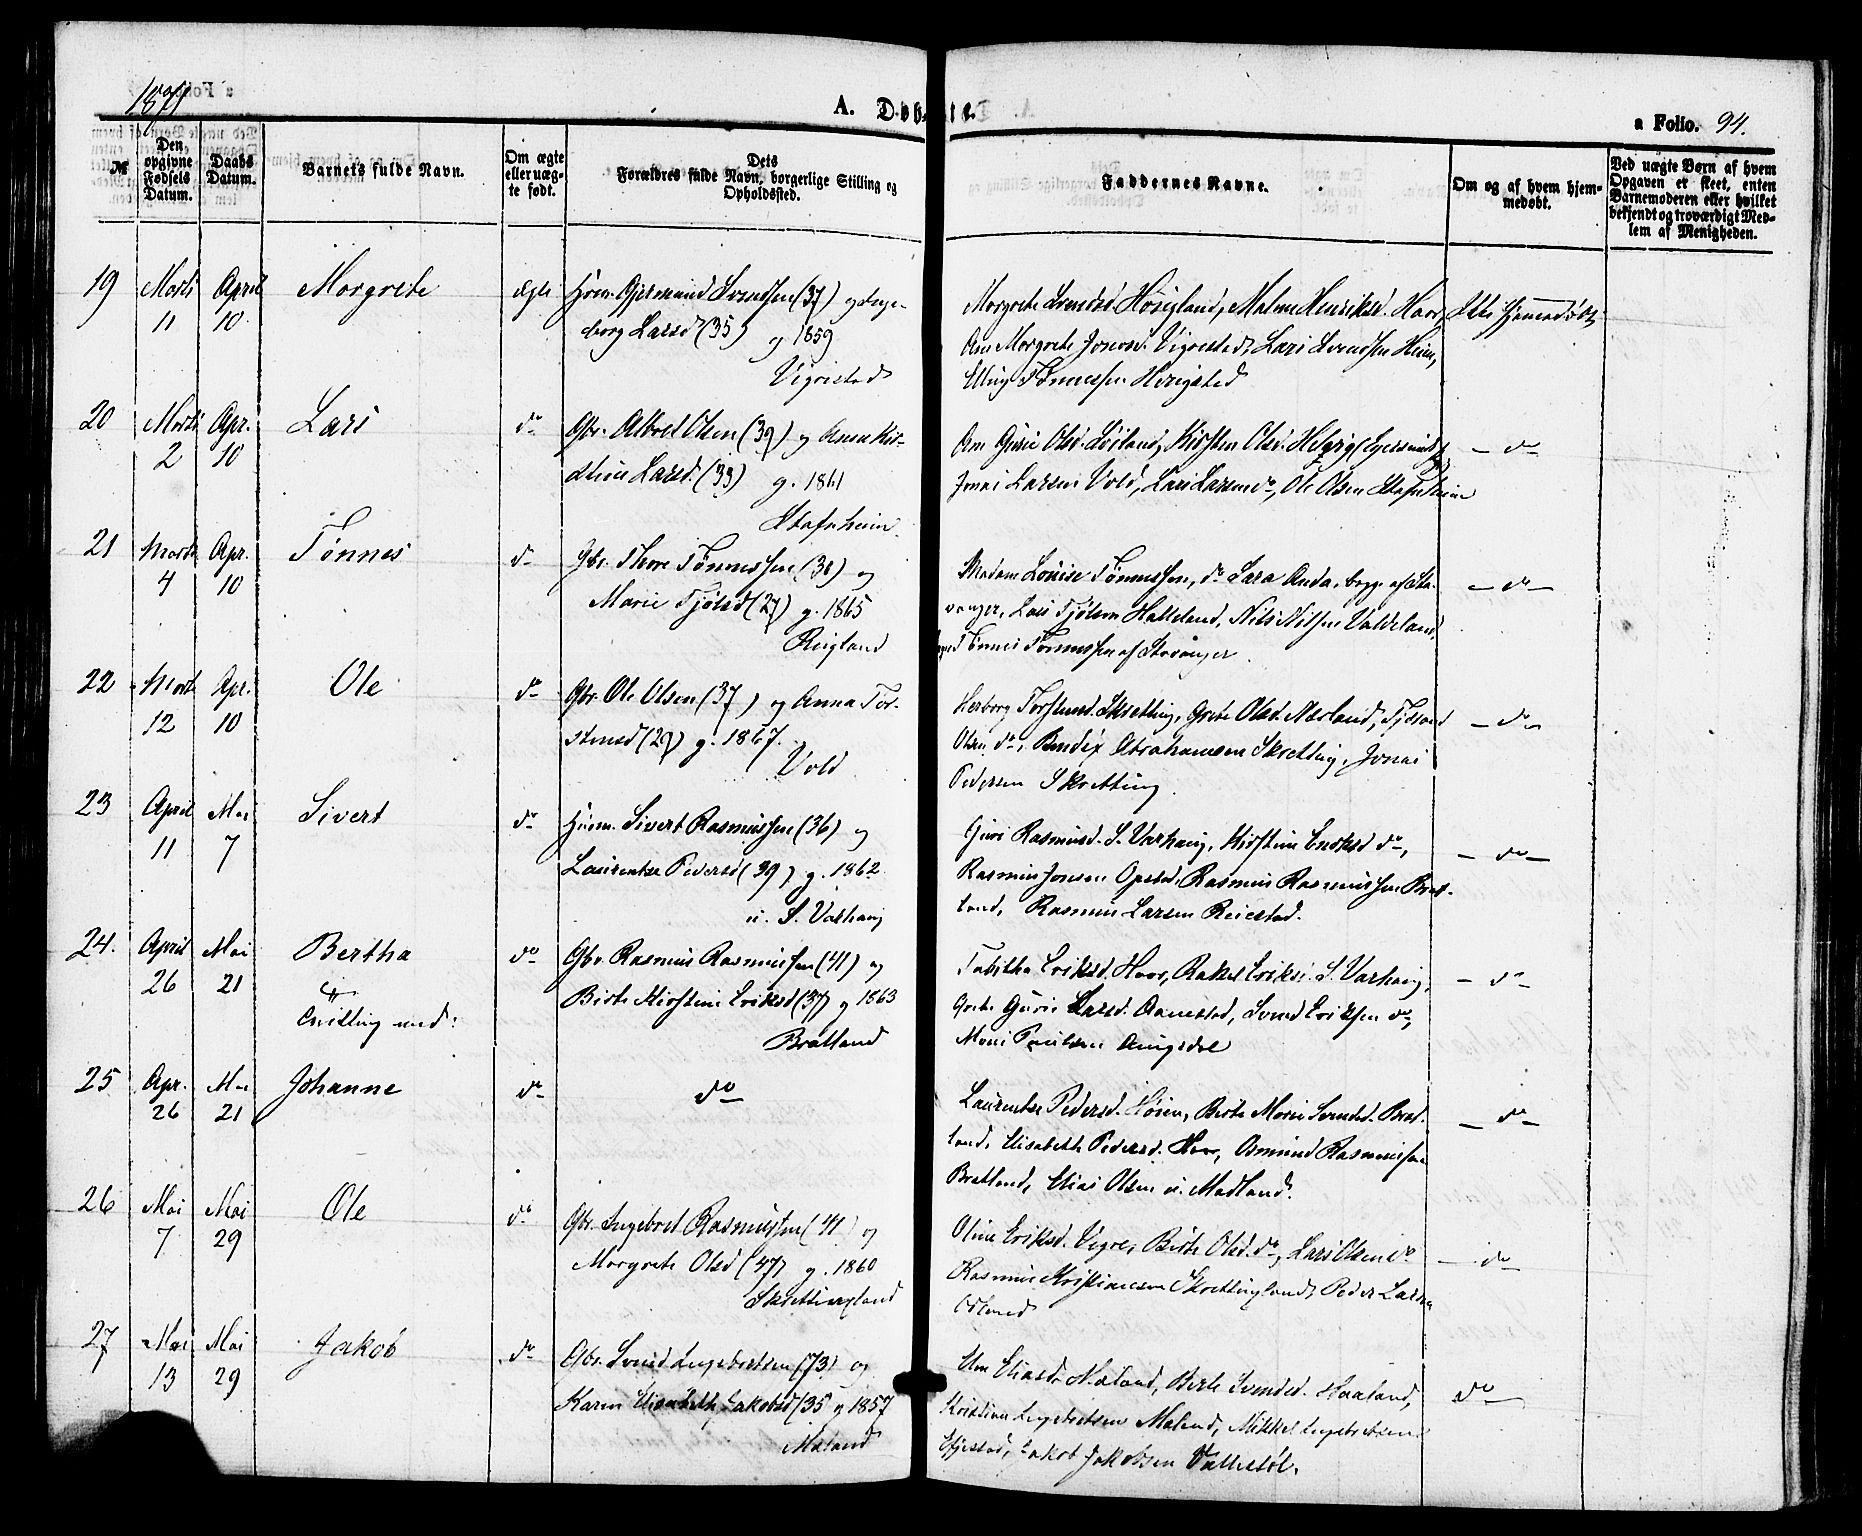 1871
A. Døbte.
a Folio. 94.
№
Den opgivne Fødsels Datum.
Daabs Datum.
Barnets fulde Navn.
Om ægte eller uægte født.
Dets Forældres fulde Navn, borgerlige Stilling og Opholdssted.
Faddernes Navne.
Om og af hvem hjemmedøbt.
Ved uægte Børn af hvem Opgaven er skeet, enten Barnemoderen eller hvilket bekjendt og troværdigt Medlem af Menigheden.
19 Marts 11 April 10 Margrete ægte
Huusm. Gjermund Svendsen (37) og Inge-
borg Larsd (35) g 1859
Vigrestad
Margrete Svendsd. Høigland, Malene Henriksd. Haar, Ikke hjemmedøbt
Ane Margrete Jonasd. Vigrestad, Lars Svendsen
Elling Tønnessen
20 Marts 2 Apr. 10 Lars do
Gbr. Albret Olsen (39) og Anne Kir-
stine Larsd. (33) g. 1861
Stafnheim
Ane Guri Olsd. Kirsten Olsd.
Jonas Larsen Vold, Lars Larsen do, Ole Olsen Stafnheim
— do
21 Marts 4 Apr. 10 Tønnes do
Gbr. Thore Tønnessen (38) og
Marie Tjølsd (27) g. 1865
Reigland
Madam Louise Tønnessen, do Lara Anda, begge af Sta-
vanger, Lars Tjølsen Halleland, Nils Nilsen Valdeland,
Tønnes Tønnessen af Stavanger.
— do —
22 Marts 12 Apr. 10 Ole do
Gbr. Ole Olsen (37) og Anna Tor-
stensd (29) g. 1867.
Vold
Herborg Torstensd. Skretting, Grete Olsd. Nærland,
Olsen do, Bendix Abrahamsen Skretting, Jonas
Pedersen Skretting.
— do —
23 April 11 Mai 7 Sivert do
Huusm. Sivert Rasmussen (36) og
Laurentse Pedersd (39) g. 1862
u. S. Varhaug
Guri Rasmusd. S. Varhaug, Kirstine do,
Rasmus Jonsen Opstad, Rasmus Rasmussen Brat-
land, Rasmus Larsen Reiestad.
— do —
24. April 26 Mai 21 Bertha do
Tvilling med:
Gbr. Rasmus Rasmussen (41) og
Birte Kirstine Eriksd (37) g 1863
Bratland
Tabitha Eriksd. Haar, Rakel Eriksd. S. Varhaug,
Grete Gurie Larsd. Aanestad, Svend Eriksen do,
Mons Paulsen
— do —
25 Apr. 26 Mai 21 Johanne do
do
Laurentse Pedersd. Birte Marie Svendsd. Brat-
land, Elisabeth Pedersd. Haar, Osmund Rasmussen
Bratland, Elias Olsen u. Madland.
— do —
26 Mai 7 Mai 29 Ole do
Gbr. Ingebret Rasmussen (41) og
Margrete Olsd (47) g. 1860
Skrettingland
Oline Eriksd. Vigre, Birte Olsd. do, Lars Olsen do
Rasmus Kristiansen Skrettingland, Peder Larsen
Ødemød
— do —
27 Mai 13 Mai 29 Jakob do
Gbr. Svend Ingebretsen (73) og
Karen Elisabeth Jakobsd (35 g 1857
Maland
Eliasd. Birte Svendsd. Haaland,
Kristian Ingebretsen Maland, Mikkel Ingebretsen
Jakob Jakobsen
do —